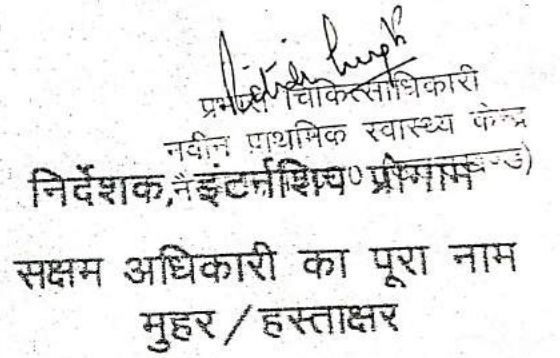 प्रभारी चिकित्साधिकारी
नवीन प्राथमिक स्वास्थ्य केन्द्र
निर्देशक, इंटर्नशिप प्रोग्राम
सक्षम अधिकारी का पूरा नाम
मुहर / हस्ताक्षर